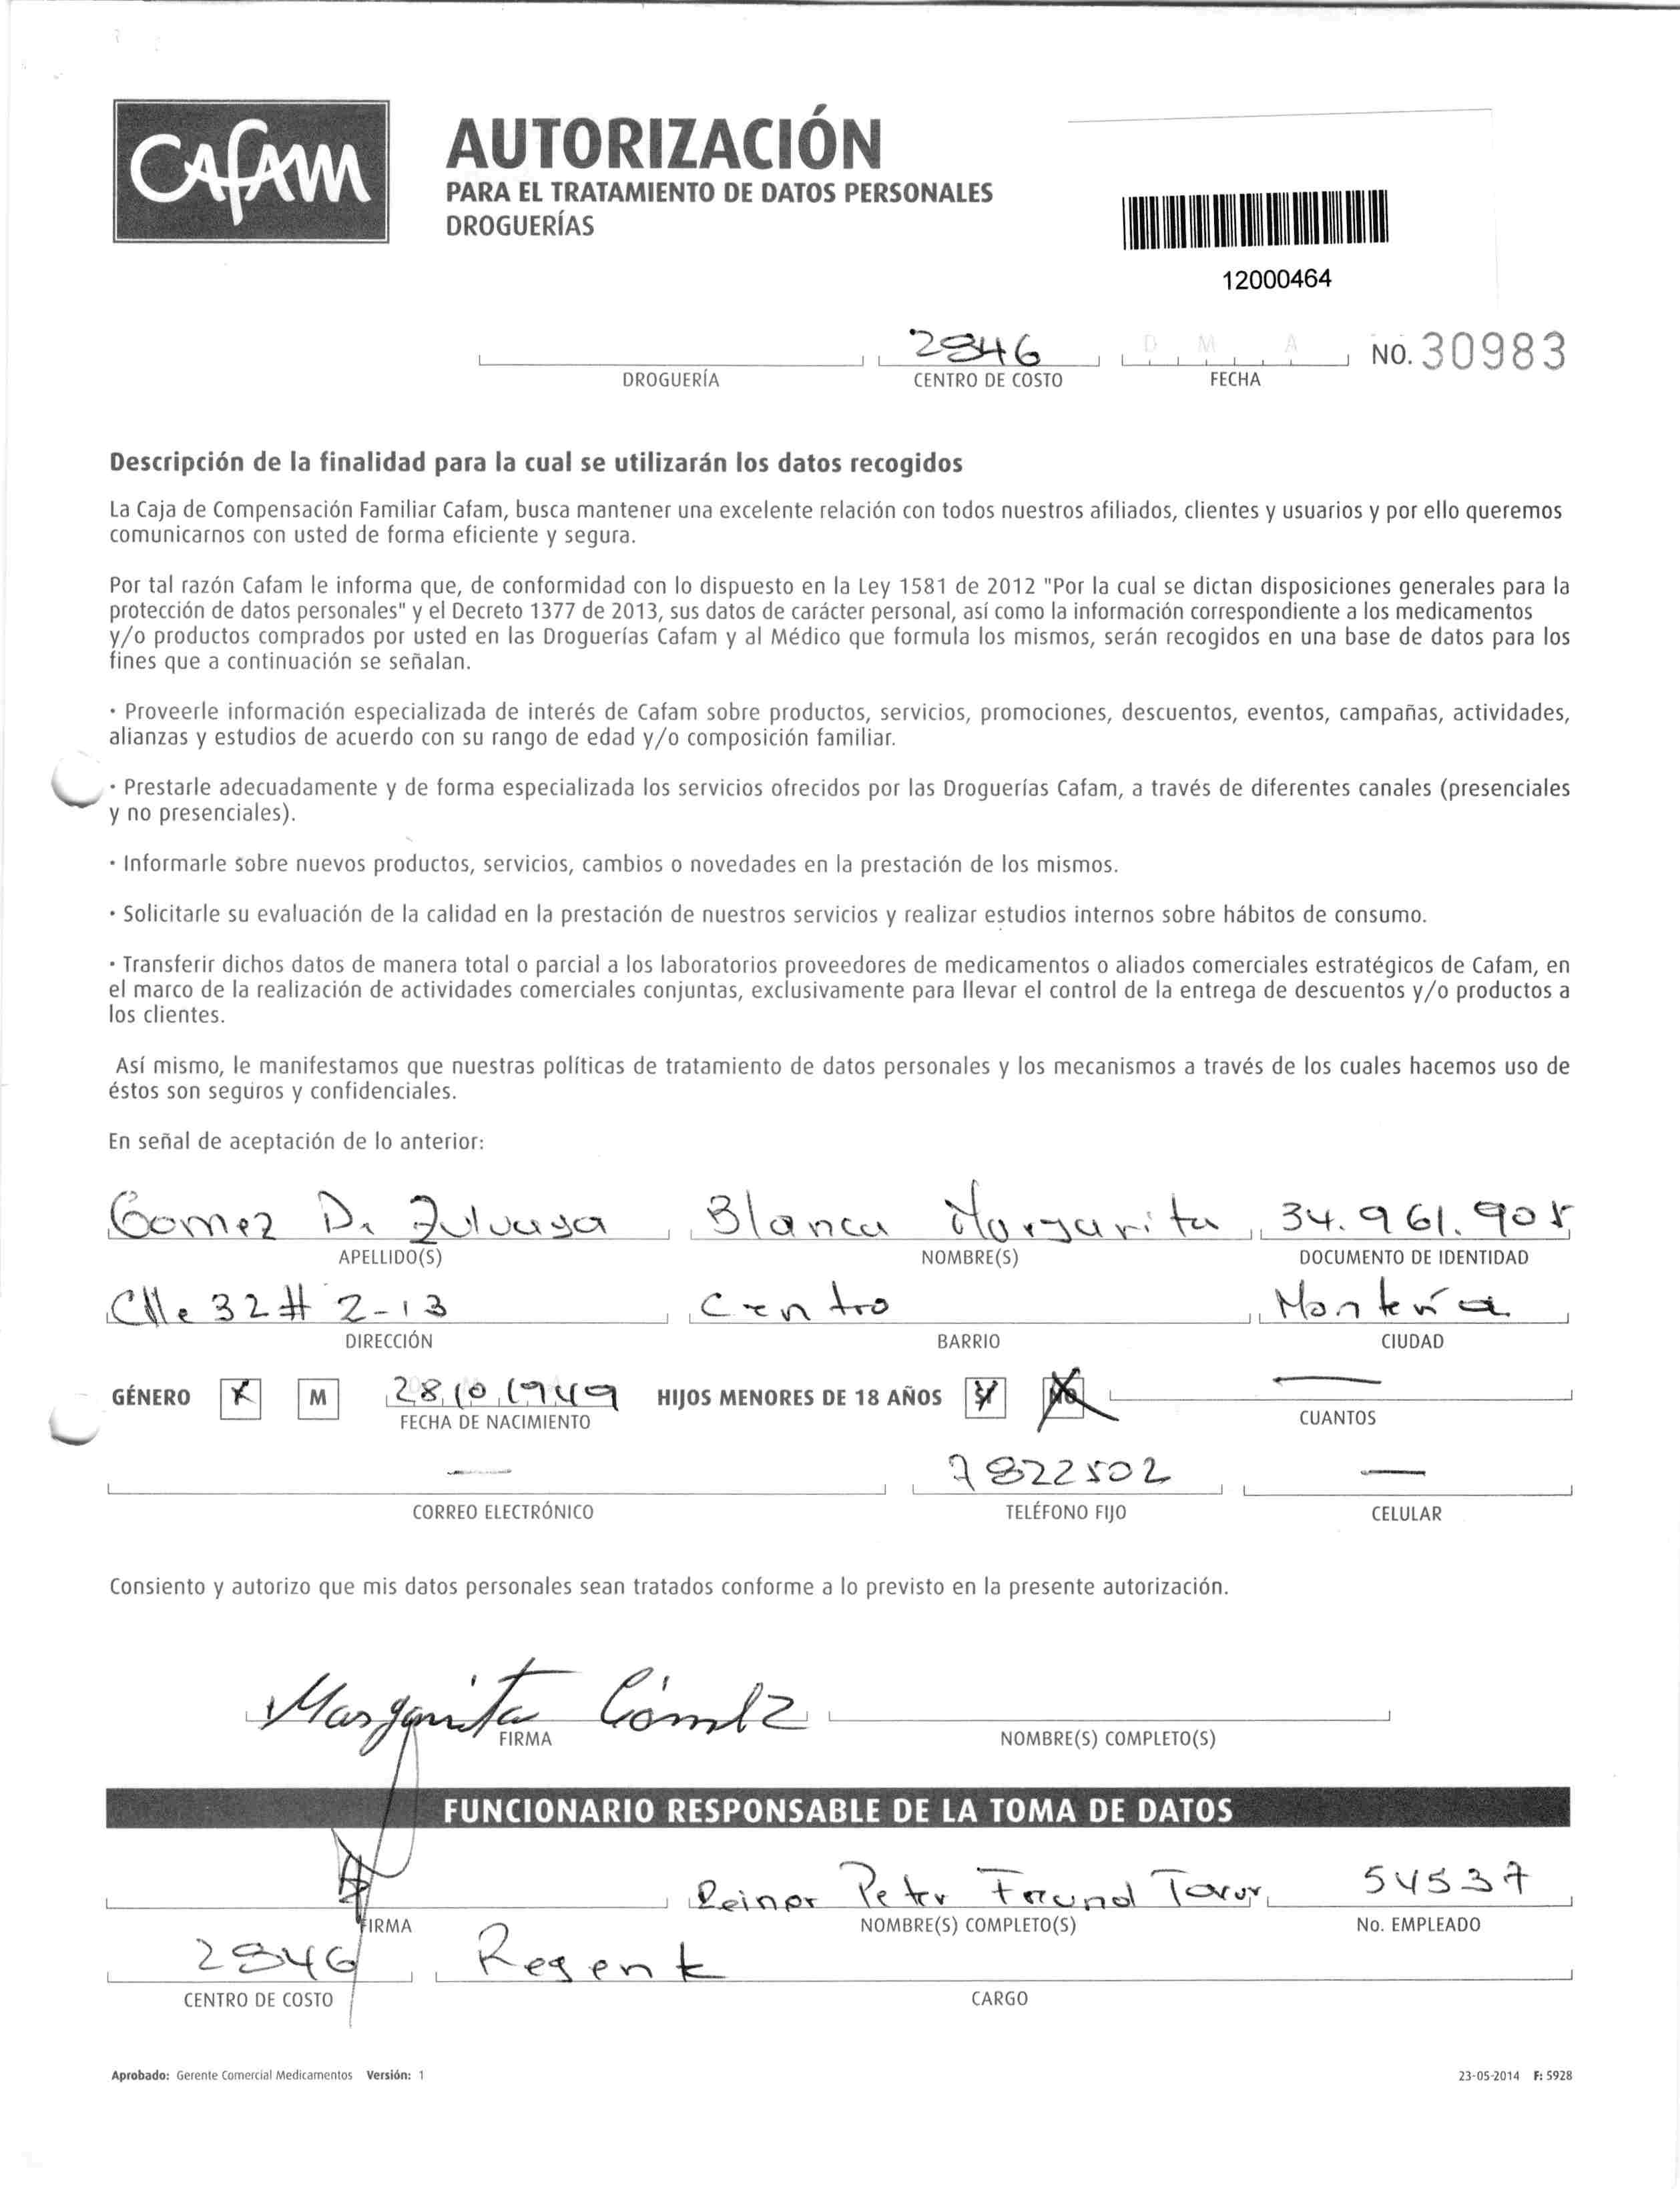 CAFAM
AUTORIZACIÓN
PARA EL TRATAMIENTO DE DATOS PERSONALES
DROGUERÍAS
12000464
2846
D M A
NO. 30983
DROGUERÍA CENTRO DE COSTO FECHA
Descripción de la finalidad para la cual se utilizarán los datos recogidos
La Caja de Compensación Familiar Cafam, busca mantener una excelente relación con todos nuestros afiliados, clientes y usuarios y por ello queremos
comunicarnos con usted de forma eficiente y segura.
Por tal razón Cafam le informa que, de conformidad con lo dispuesto en la Ley 1581 de 2012 "Por la cual se dictan disposiciones generales para la
protección de datos personales" y el Decreto 1377 de 2013, sus datos de carácter personal, así como la información correspondiente a los medicamentos
y/o productos comprados por usted en las Droguerías Cafam y al Médico que formula los mismos, serán recogidos en una base de datos para los
fines que a continuación se señalan.
· Proveerle información especializada de interés de Cafam sobre productos, servicios, promociones, descuentos, eventos, campañas, actividades,
alianzas y estudios de acuerdo con su rango de edad y/o composición familiar.
· Prestarle adecuadamente y de forma especializada los servicios ofrecidos por las Droguerías Cafam, a través de diferentes canales (presenciales
y no presenciales).
· Informarle sobre nuevos productos, servicios, cambios o novedades en la prestación de los mismos.
· Solicitarle su evaluación de la calidad en la prestación de nuestros servicios y realizar estudios internos sobre hábitos de consumo.
· Transferir dichos datos de manera total o parcial a los laboratorios proveedores de medicamentos o aliados comerciales estratégicos de Cafam, en
el marco de la realización de actividades comerciales conjuntas, exclusivamente para llevar el control de la entrega de descuentos y/o productos a
los clientes.
Así mismo, le manifestamos que nuestras políticas de tratamiento de datos personales y los mecanismos a través de los cuales hacemos uso de
éstos son seguros y confidenciales.
En señal de aceptación de lo anterior:
Gomez De Zuluaga Blanca Margarita 34.961.905
APELLIDO(S) NOMBRE(S) DOCUMENTO DE IDENTIDAD
Clle 32 # 2-13 Centro Montería
DIRECCIÓN BARRIO CIUDAD
GÉNERO X M 28 10 1949 HIJOS MENORES DE 18 AÑOS NO
FECHA DE NACIMIENTO CUANTOS
— 7822502 —
CORREO ELECTRÓNICO TELÉFONO FIJO CELULAR
Consiento y autorizo que mis datos personales sean tratados conforme a lo previsto en la presente autorización.
Margarita Gómez
FIRMA NOMBRE(S) COMPLETO(S)
FUNCIONARIO RESPONSABLE DE LA TOMA DE DATOS
Peter 54537
FIRMA NOMBRE(S) COMPLETO(S) No. EMPLEADO
2846 Regente
CENTRO DE COSTO CARGO
Aprobado: Gerente Comercial Medicamentos Versión: 1 23-05-2014 F: 5928